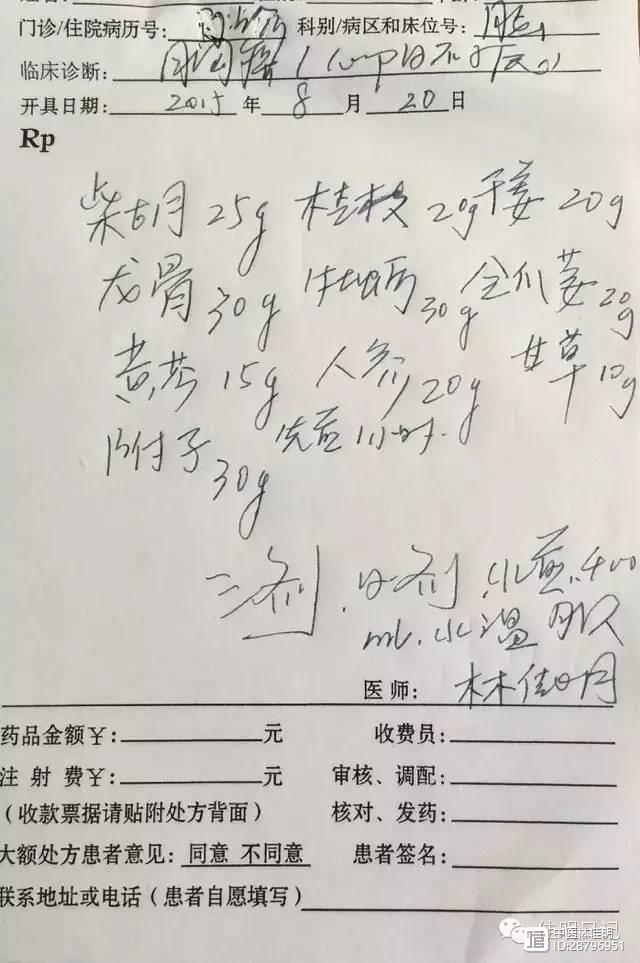 门诊/住院病历号: 科别/病区和床位号:
临床诊断:
开具日期: 2015 年 8 月 20 日
Rp
柴胡 25g 桂枝 20g 干姜 20g
龙骨 30g 牡蛎 30g 全瓜蒌 20g
黄芩 15g 人参 20g 甘草 10g
附子 30g 先煎1小时.
三剂. 日一剂. 水煎. 400
ml. 水温服
医师: 林佳明
药品金额¥: 元 收费员:
注 射 费¥: 元 审核、调配:
(收款票据请贴附处方背面) 核对、发药:
大额处方患者意见: 同意 不同意 患者签名:
联系地址或电话(患者自愿填写)
佳明日记
中医林佳明
ID:28796951